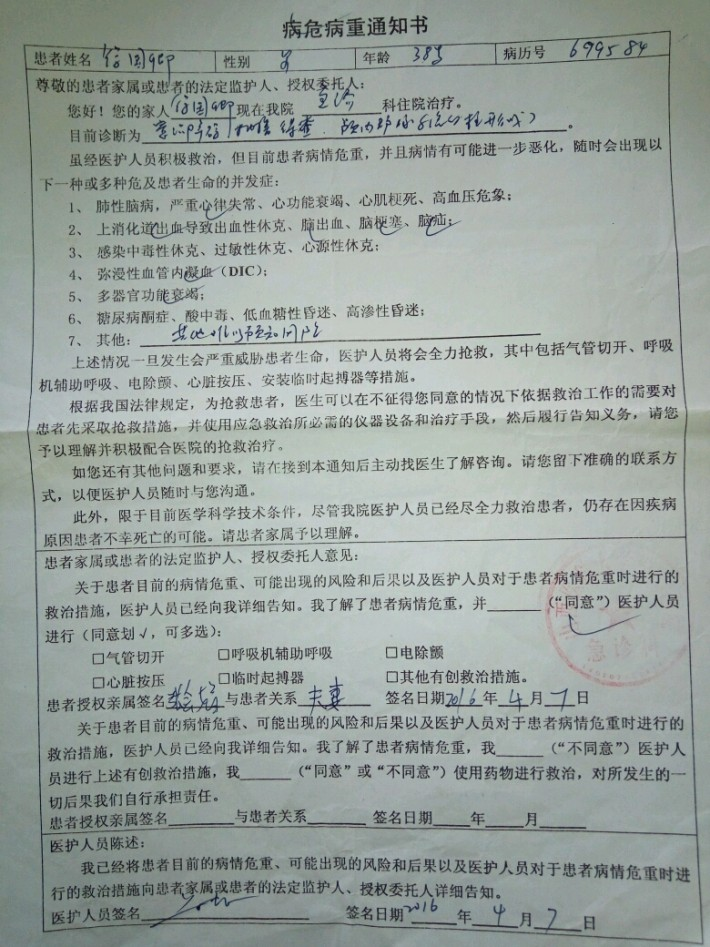 病危病重通知书
患者姓名 性别 年龄 38岁 病历号 699584
尊敬的患者家属或患者的法定监护人、授权委托人：
您好！您的家人 现在我院 急诊 科住院治疗。
目前诊断为 。
虽经医护人员积极救治，但目前患者病情危重，并且病情有可能进一步恶化，随时会出现以
下一种或多种危及患者生命的并发症：
1、 肺性脑病，严重心律失常、心功能衰竭、心肌梗死、高血压危象；
2、 上消化道出血导致出血性休克、脑出血、脑梗塞、脑疝；
3、 感染中毒性休克、过敏性休克、心源性休克；
4、 弥漫性血管内凝血（DIC）；
5、 多器官功能衰竭；
6、 糖尿病酮症、酸中毒、低血糖性昏迷、高渗性昏迷；
7、 其他： 其他难以预知风险
上述情况一旦发生会严重威胁患者生命，医护人员将会全力抢救，其中包括气管切开、呼吸
机辅助呼吸、电除颤、心脏按压、安装临时起搏器等措施。
根据我国法律规定，为抢救患者，医生可以在不征得您同意的情况下依据救治工作的需要对
患者先采取抢救措施，并使用应急救治所必需的仪器设备和治疗手段，然后履行告知义务，请您
予以理解并积极配合医院的抢救治疗。
如您还有其他问题和要求，请在接到本通知后主动找医生了解咨询。请您留下准确的联系方
式，以便医护人员随时与您沟通。
此外，限于目前医学科学技术条件，尽管我院医护人员已经尽全力救治患者，仍存在因疾病
原因患者不幸死亡的可能。请患者家属予以理解。
患者家属或患者的法定监护人、授权委托人意见：
关于患者目前的病情危重、可能出现的风险和后果以及医护人员对于患者病情危重时进行的
救治措施，医护人员已经向我详细告知。我了解了患者病情危重，并______（“同意”）医护人员
进行（同意划√，可多选）：
急诊
□气管切开 □呼吸机辅助呼吸 □电除颤
□心脏按压 □临时起搏器 □其他有创救治措施。
患者授权亲属签名 与患者关系 夫妻 签名日期2016年4月7日
关于患者目前的病情危重、可能出现的风险和后果以及医护人员对于患者病情危重时进行的
救治措施，医护人员已经向我详细告知。我了解了患者病情危重，我______（“不同意”）医护人
员进行上述有创救治措施，我______（“同意”或“不同意”）使用药物进行救治，对所发生的一
切后果我们自行承担责任。
患者授权亲属签名________与患者关系________ 签名日期____年____月____
医护人员陈述：
我已经将患者目前的病情危重、可能出现的风险和后果以及医护人员对于患者病情危重时进
行的救治措施向患者家属或患者的法定监护人、授权委托人详细告知。
医护人员签名 签名日期2016年4月7日